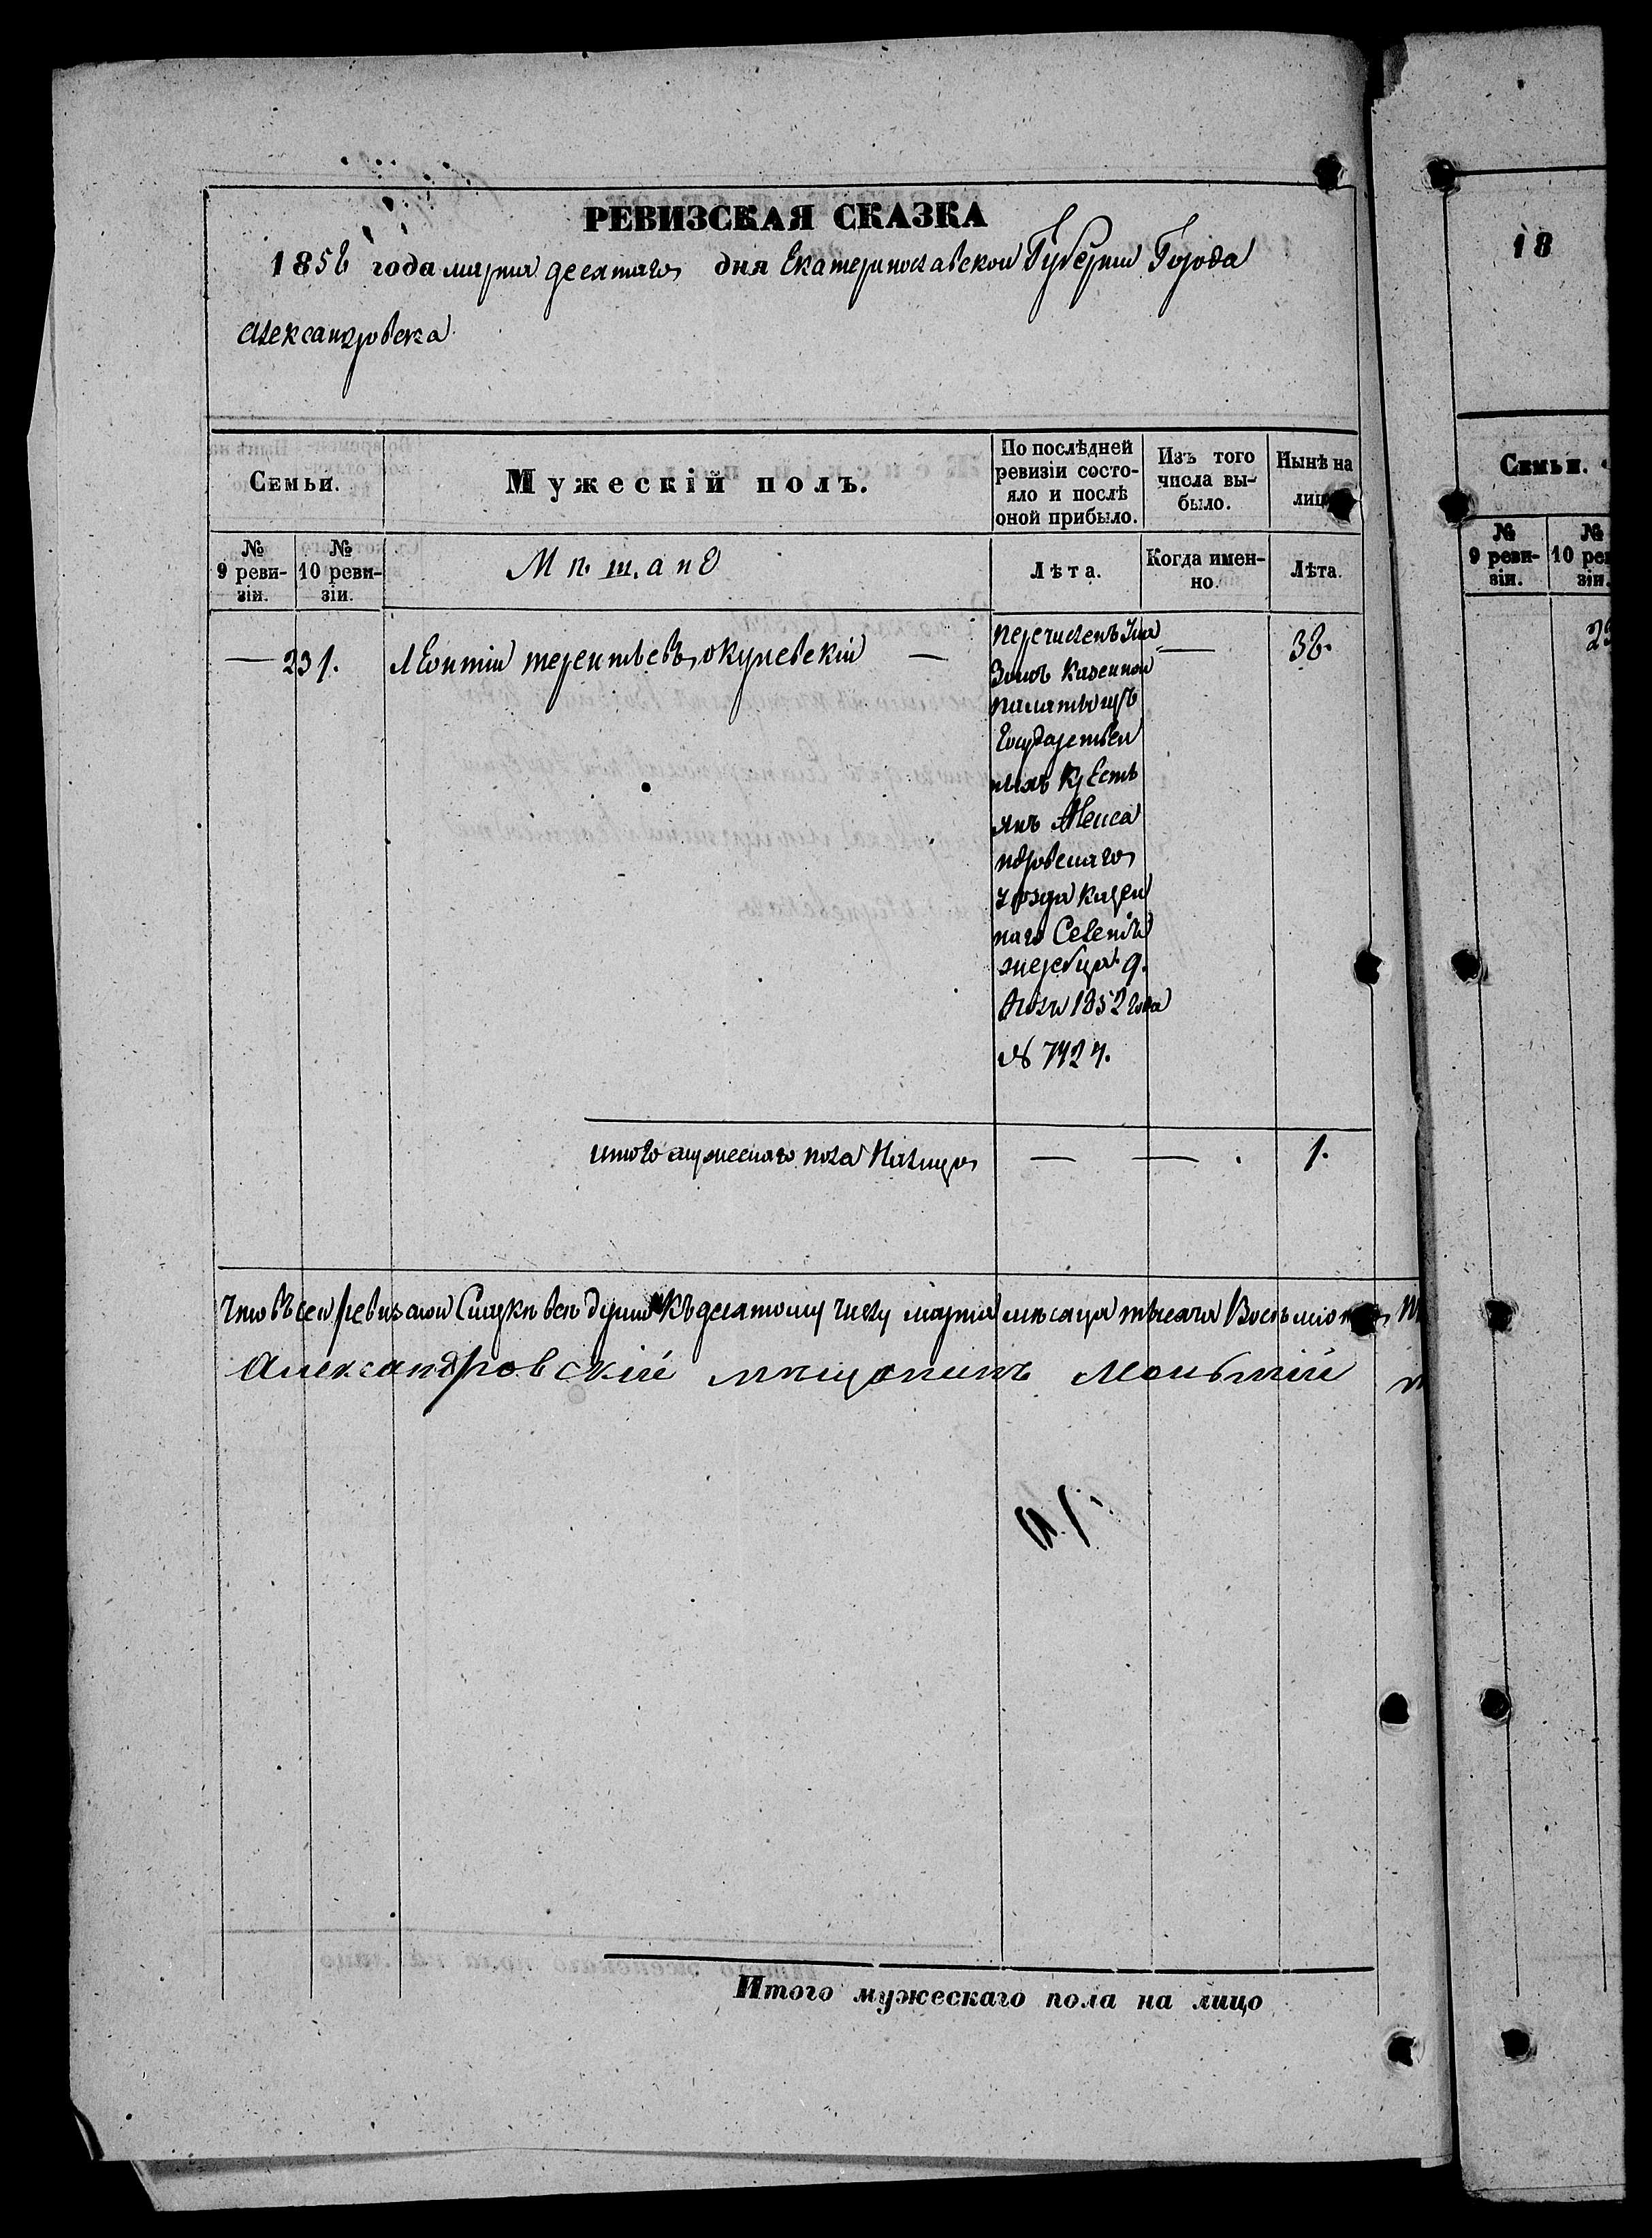 РЕВИЗСКАЯ СКАЗКА
1858 года марта десятаго дня Екатеринославской Губерніи Города
Александровска
Семьи.
Мужескій полъ.
По послѣдней ревизіи состо-
яло и послѣ
оной прибыло.
Изъ того
числа вы-
было.
Нынѣ на
лицо
№
9 реви-
зіи.
№
10 реви-
зіи.
Мѣщанѣ
Лѣта.
Когда имен-
но.
Лѣта.
— 231. Леонтій терентьевъ окуневскій —
перечисленъ
Казенной
палаты изъ
Государствен
ныхъ Кресть
янъ Алекса
ндровскаго
уѣзда казен
наго Селенія
жеребца 9.
1852 года
№ 7424.
—
38.
итого мужескаго пола Налицо — — 1.
Что въ сей ревизской Сказкѣ всѣ души Къ десятому числу марта мѣсяца тысяча Восемьсотъ
Александровскій мѣщанинъ
Итого мужескаго пола на лицо
18
Семьи.
№
9 реви-
зіи.
№
10 рев
зіи.
23